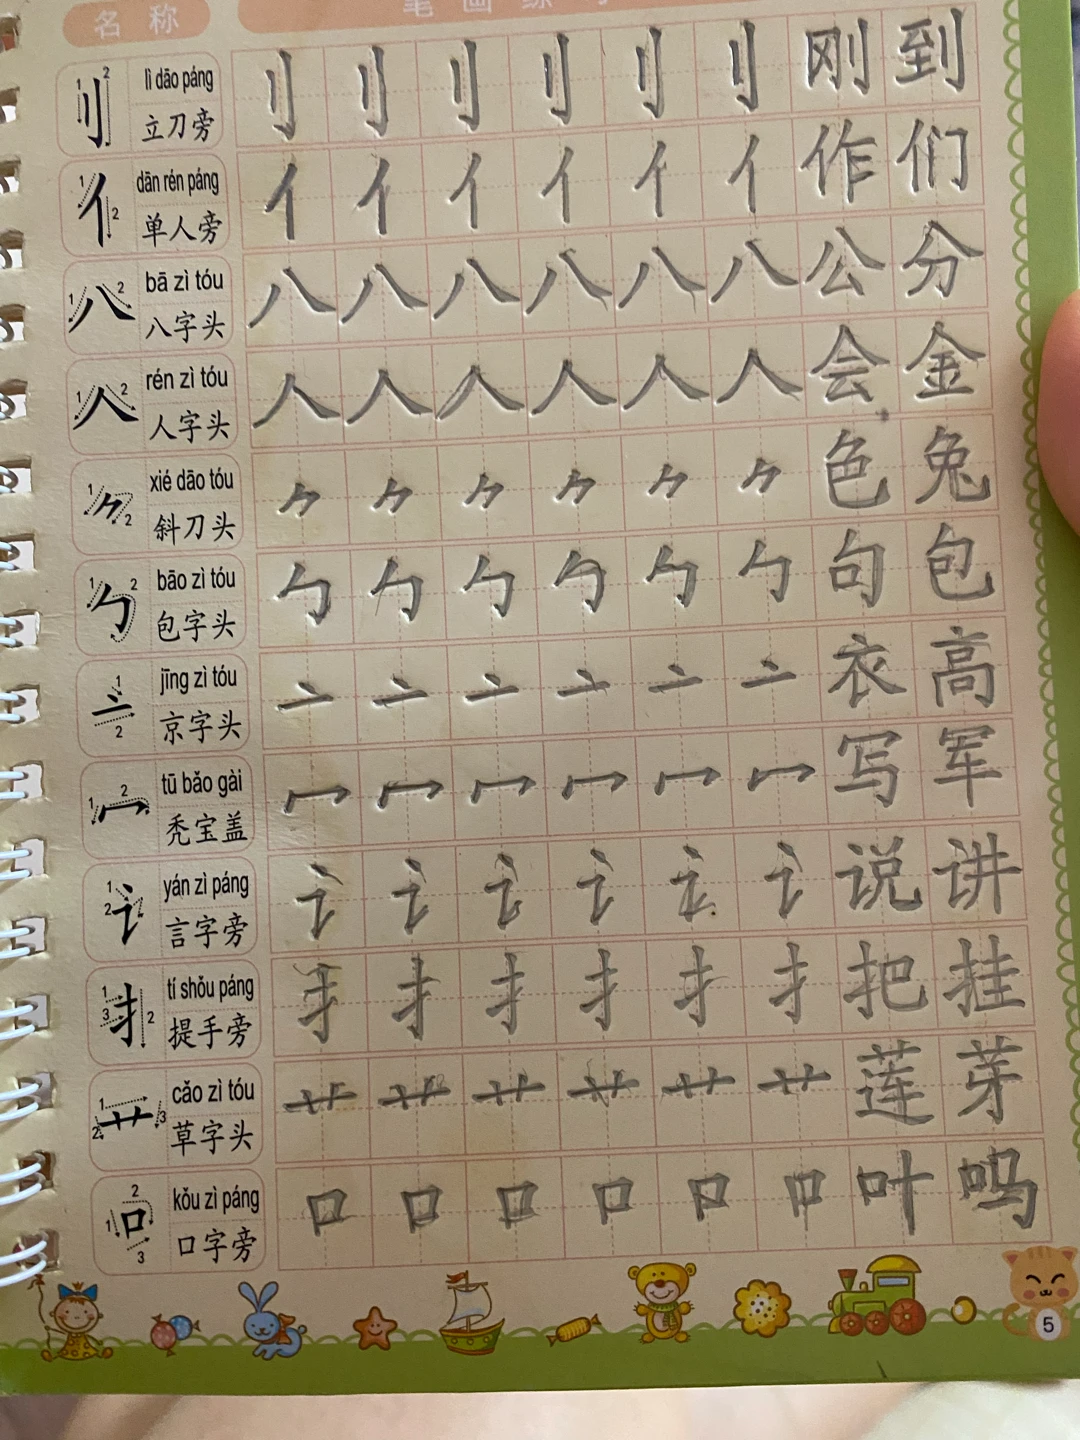 名称 笔画练习
1 2 刂 lì dāo páng 立刀旁 刂 刂 刂 刂 刂 刂 刚 到
1 2 亻 dān rén páng 单人旁 亻 亻 亻 亻 亻 亻 作 们
1 2 八 bā zì tóu 八字头 八 八 八 八 八 八 公 分
1 2 人 rén zì tóu 人字头 人 人 人 人 人 人 会 金
1 2 ⺈ xié dāo tóu 斜刀头 ⺈ ⺈ ⺈ ⺈ ⺈ ⺈ 色 兔
1 2 勹 bāo zì tóu 包字头 勹 勹 勹 勹 勹 勹 句 包
1 2 亠 jīng zì tóu 京字头 亠 亠 亠 亠 亠 亠 衣 高
1 2 冖 tū bǎo gài 秃宝盖 冖 冖 冖 冖 冖 冖 写 军
1 2 讠 yán zì páng 言字旁 讠 讠 讠 讠 讠 讠 说 讲
1 3 2 扌 tí shǒu páng 提手旁 扌 扌 扌 扌 扌 扌 把 挂
1 2 3 艹 cǎo zì tóu 草字头 艹 艹 艹 艹 艹 艹 莲 芽
2 1 3 口 kǒu zì páng 口字旁 口 口 口 口 口 口 叶 吗
5